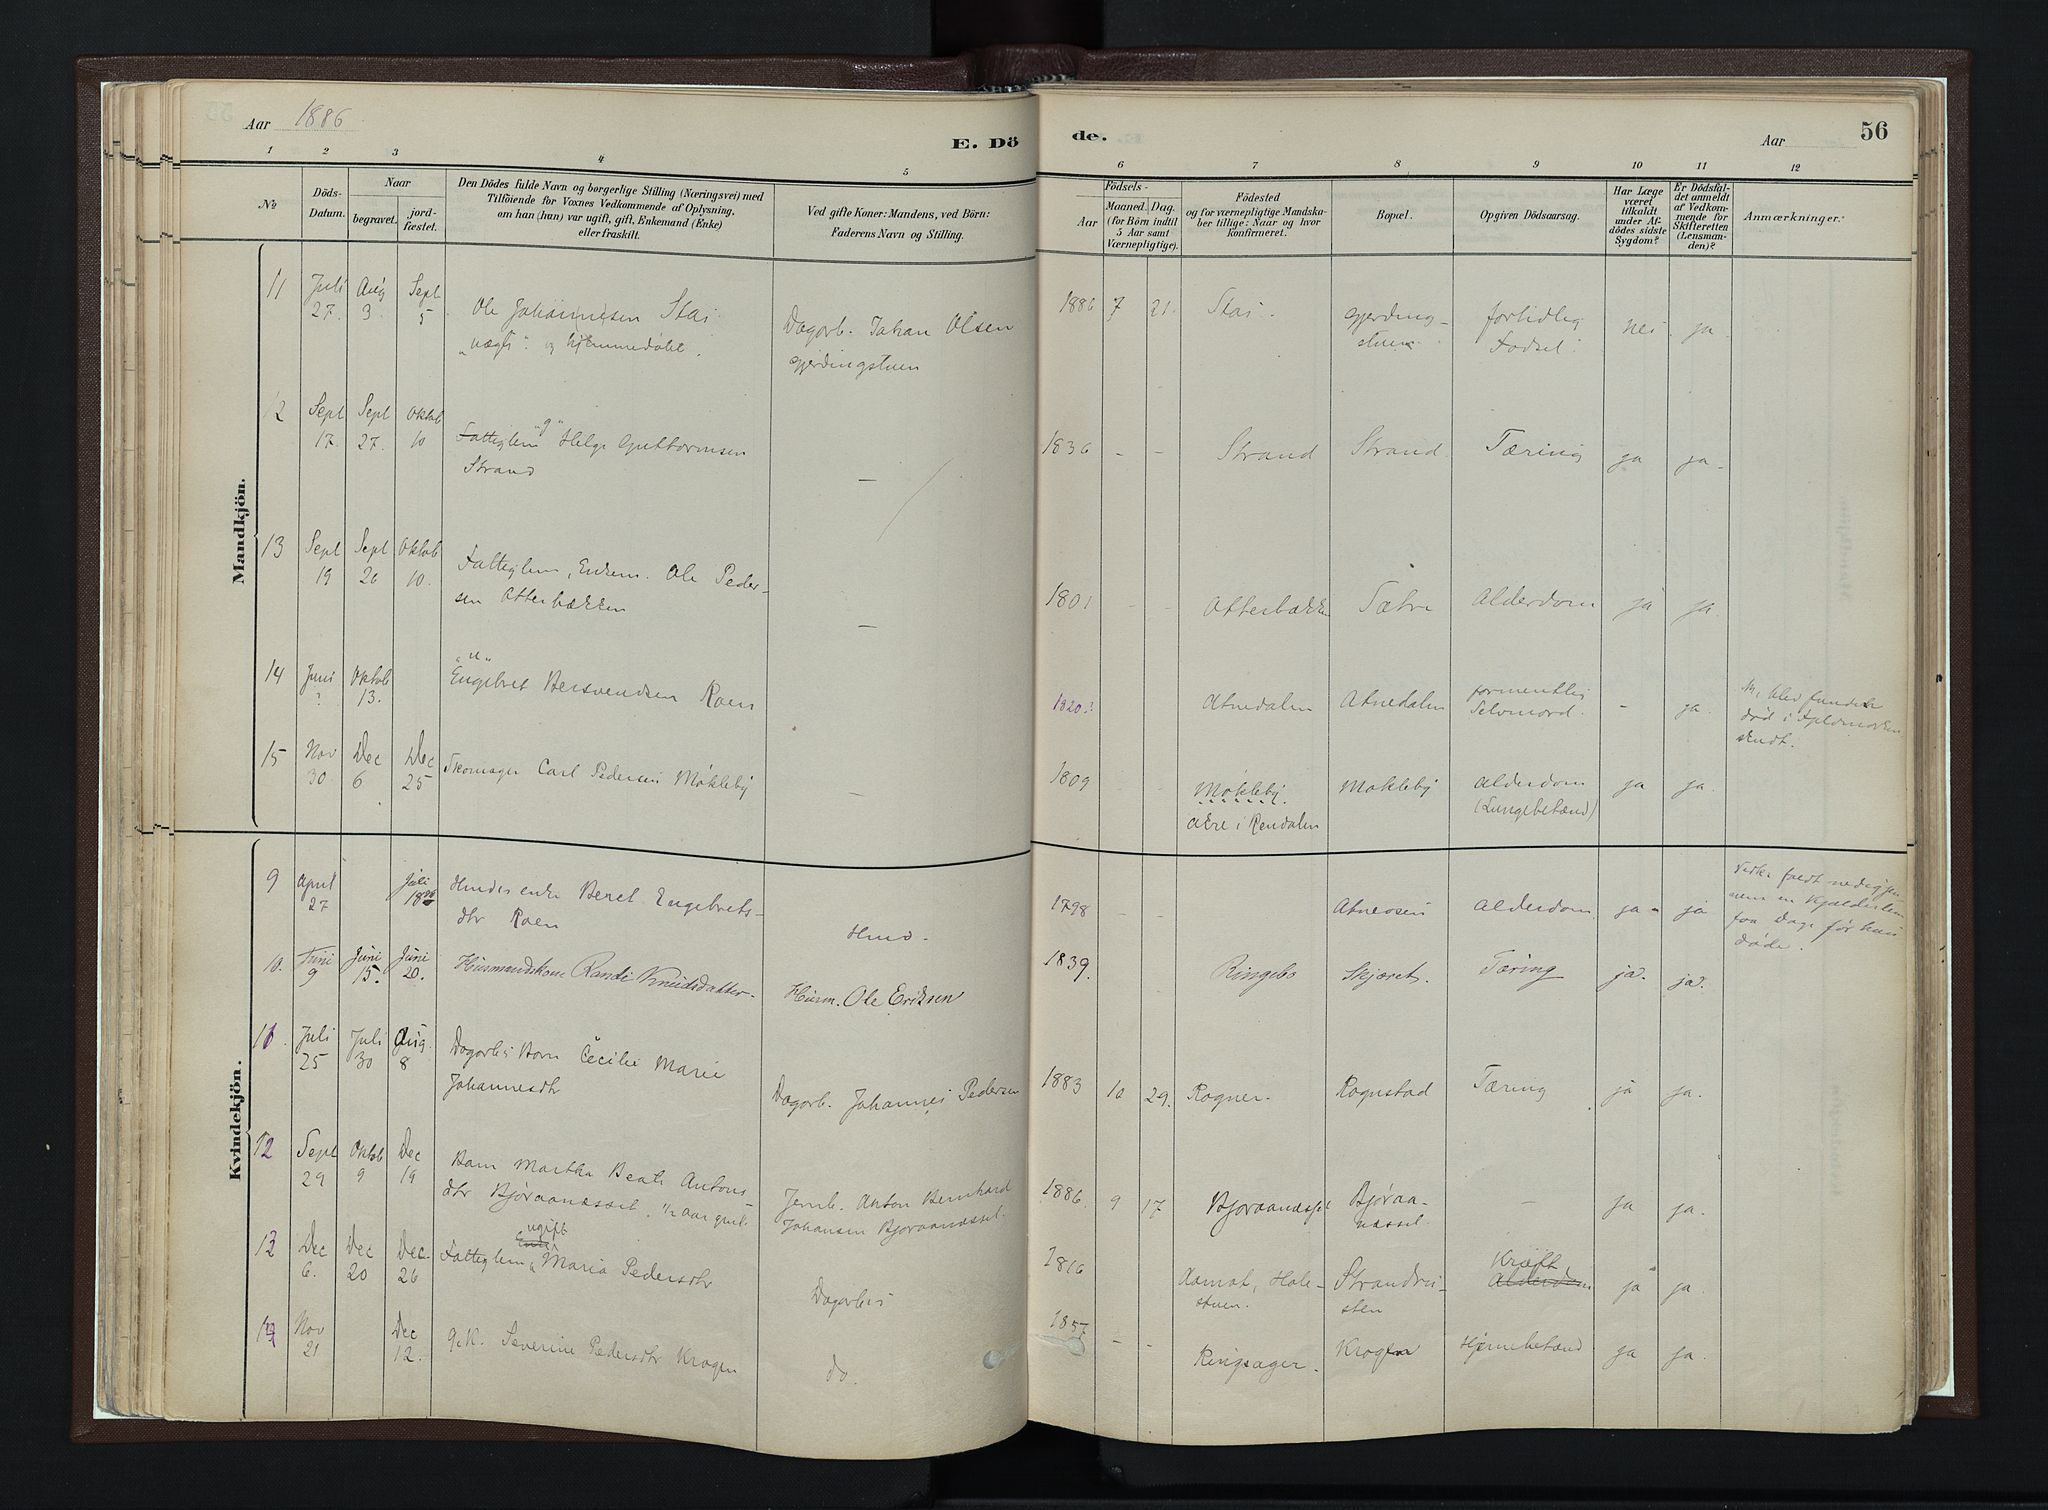 Aar 1886
E. Dö
de.
Aar
56
1 2 3 4 5 6 7 8 9 10 11 12
№
Döds-
Datum.
Naar
begravet.
jord-
fæstet.
Den Dödes fulde Navn og borgerlige Stilling (Næringsvei) med
Tilföiende for Voxnes Vedkommende af Oplysning,
om han (hun) var ugift, gift, Enkemand (Enke)
eller fraskilt.
Ved gifte Koner: Mandens, ved Börn:
Faderens Navn og Stilling.
Födsels-
Aar
Maaned. Dag.
(for Börn indtil
5 Aar samt
Værnepligtige).
Födested
og for værnepligtige Mandska-
ber tillige: Naar og hvor
konfirmeret.
Bopæl.
Opgiven Dödsaarsag.
Har Læge
været
tilkaldt
under Af-
dödes sidste
Sygdom?
Er Dödsfal-
det anmeldt
af Vedkom-
mende for
Skifteretten
(Lensman-
den)?
Anmærkninger.
Mandkjön.
11 Juli 27. Aug 3. Sept 5.
Ole Johannesen Stai
"uægte" og hjemmedøbt.
Dagarb. Johan Olsen
Gjerdingstuen
1886 7 21. Stai. Gjerding-
stuen. for tidlig
Fødsel. nei ja
12 Sept 17. Sept 27. Oktob 10
Fattiglem "g" Helge Guttormsen
Strand
-
1836 - - Strand Strand. Tæring ja ja
13 Sept 19 Sept 26 Oktob 10.
Fattiglem, Enkem. Ole Peder-
sen Atterbækken
-
1801 - - Atterbækken Sætre Alderdom ja ja.
14 Juni ? Oktob 13.
"u"
Engebret Bersvendsen Roen
1820? Atnedalen Atnedalen formentlig
Selvmord. - ja.
blev funden
død i
15 Nov 30. Dec 6 Dec 25
Skomager Carl Pedersen Møkleby
-
1809 - - Møkleby.
Øvre i Rendalen Møkleby Alderdom
(Lungebetænd) ja ja.
Kvindekjön.
9 April 27 Juli 18
enke Beret Engebrets-
dtr Roen
1798 - - Atneosen Alderdom ja ja
10. Juni 9 Juni 15. Juni 20.
Husmandskone Randi Knudsdatter.
Husm. Ole Eriksen
1839. Ringebo Skjæret. Tæring ja. ja.
11. Juli 25 Juli 30 Aug. 8
Dagarbs Barn Cecilie Marie
Johannesdtr
Dagarb. Johannes Pedersen
1883 10 29. Rogner. Rognstad Tæring ja ja.
12 Sept 29 Oktob 9 Dec 19
Barn Martha Beate Antons
dtr Bjøraanæsset. ½ aar gml.
Jernb. Anton Bernhard
Johansen Bjøraanæsset.
1886. 9 17 Bjøraanæsset Bjøraa-
næsset. - ja ja.
13 Dec 6. Dec 20 Dec 26
ugift
Fattiglem Enke Maria Pedersdtr
Dagarbs
1816 Aamot, Hole-
stuen. Strandvi-
sten Kræft,
Alderdom ja ja.
14 Nov 21 Dec 12.
g.K. Severine Pedersdtr Krogen
do.
1857 - - Ringsager. Krogen Hjernebetænd ja ja.